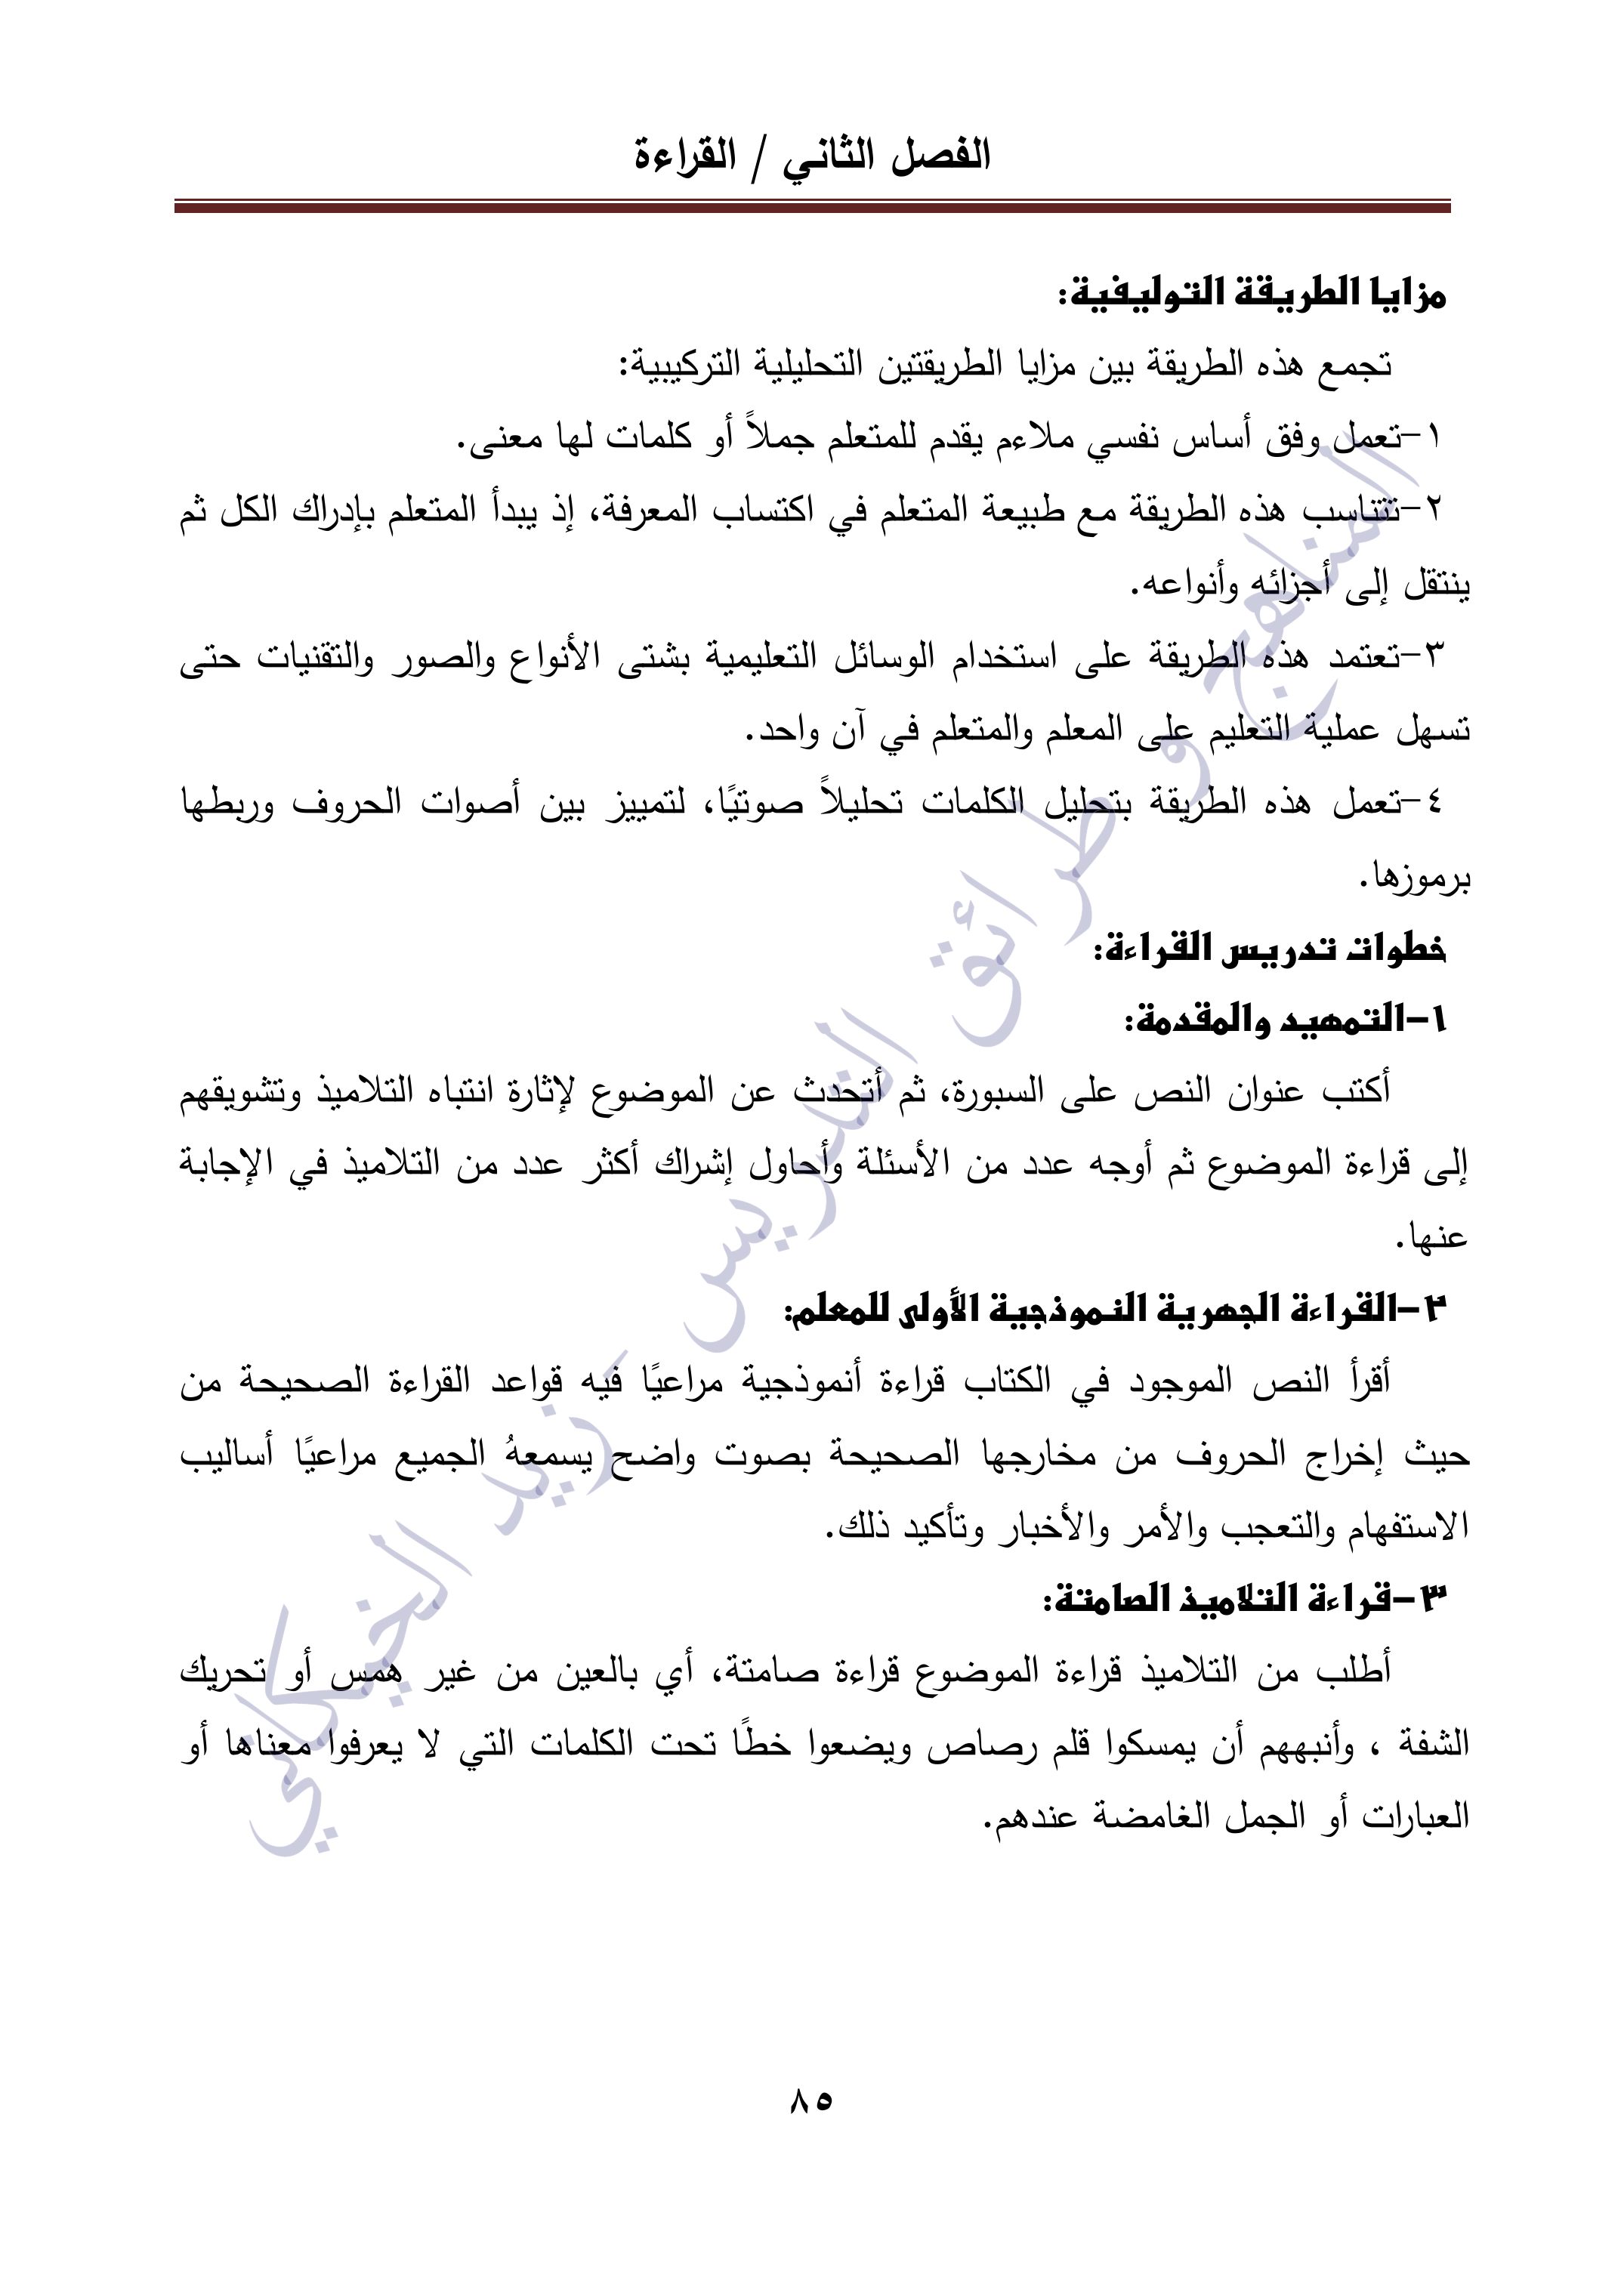 الفصل الثاني / القراءة
مزايا الطريقة التوليفية:
تجمع هذه الطريقة بين مزايا الطريقتين التحليلية التركيبية:
١-تعمل وفق أساس نفسي ملاءم يقدم للمتعلم جملاً أو كلمات لها معنى.
٢-تتناسب هذه الطريقة مع طبيعة المتعلم في اكتساب المعرفة، إذ يبدأ المتعلم بإدراك الكل ثم
ينتقل إلى أجزائه وأنواعه.
٣-تعتمد هذه الطريقة على استخدام الوسائل التعليمية بشتى الأنواع والصور والتقنيات حتى
تسهل عملية التعليم على المعلم والمتعلم في آن واحد.
٤-تعمل هذه الطريقة بتحليل الكلمات تحليلاً صوتيًا، لتمييز بين أصوات الحروف وربطها
برموزها.
خطوات تدريس القراءة:
١-التمهيد والمقدمة:
أكتب عنوان النص على السبورة، ثم أتحدث عن الموضوع لإثارة انتباه التلاميذ وتشويقهم
إلى قراءة الموضوع ثم أوجه عدد من الأسئلة وأحاول إشراك أكثر عدد من التلاميذ في الإجابة
عنها.
٢-القراءة الجهرية النموذجية الأولى للمعلم:
أقرأ النص الموجود في الكتاب قراءة أنموذجية مراعيًا فيه قواعد القراءة الصحيحة من
حيث إخراج الحروف من مخارجها الصحيحة بصوت واضح يسمعهُ الجميع مراعيًا أساليب
الاستفهام والتعجب والأمر والأخبار وتأكيد ذلك.
٣-قراءة التلاميذ الصامتة:
أطلب من التلاميذ قراءة الموضوع قراءة صامتة، أي بالعين من غير همس أو تحريك
الشفة ، وأنبههم أن يمسكوا قلم رصاص ويضعوا خطًا تحت الكلمات التي لا يعرفوا معناها أو
العبارات أو الجمل الغامضة عندهم.
المناهج و طرائق التدريس - زيد الخيكاني
٨٥